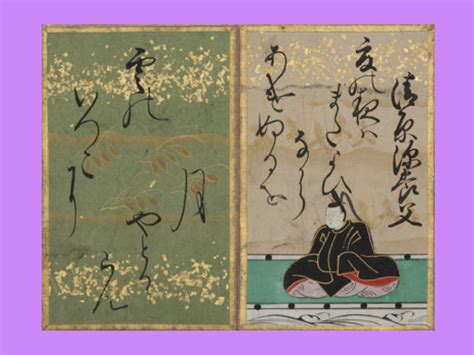 清原深養父
夏の夜ハ
またよひ
なから
あけぬるを
雲の
いつこ
に
月
やとる
らん